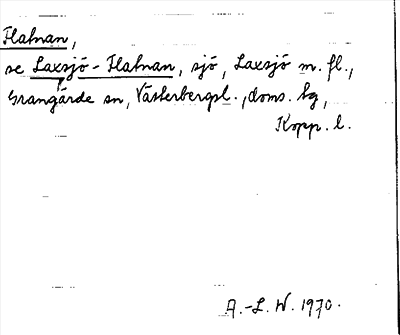 Flatnan,
se Laxsjö-Flatnan, sjö, Laxsjö m. fl.,
Grangärde sn, Västerbergsl., doms. hg,
Kopp. l.
A.-L. W. 1970.